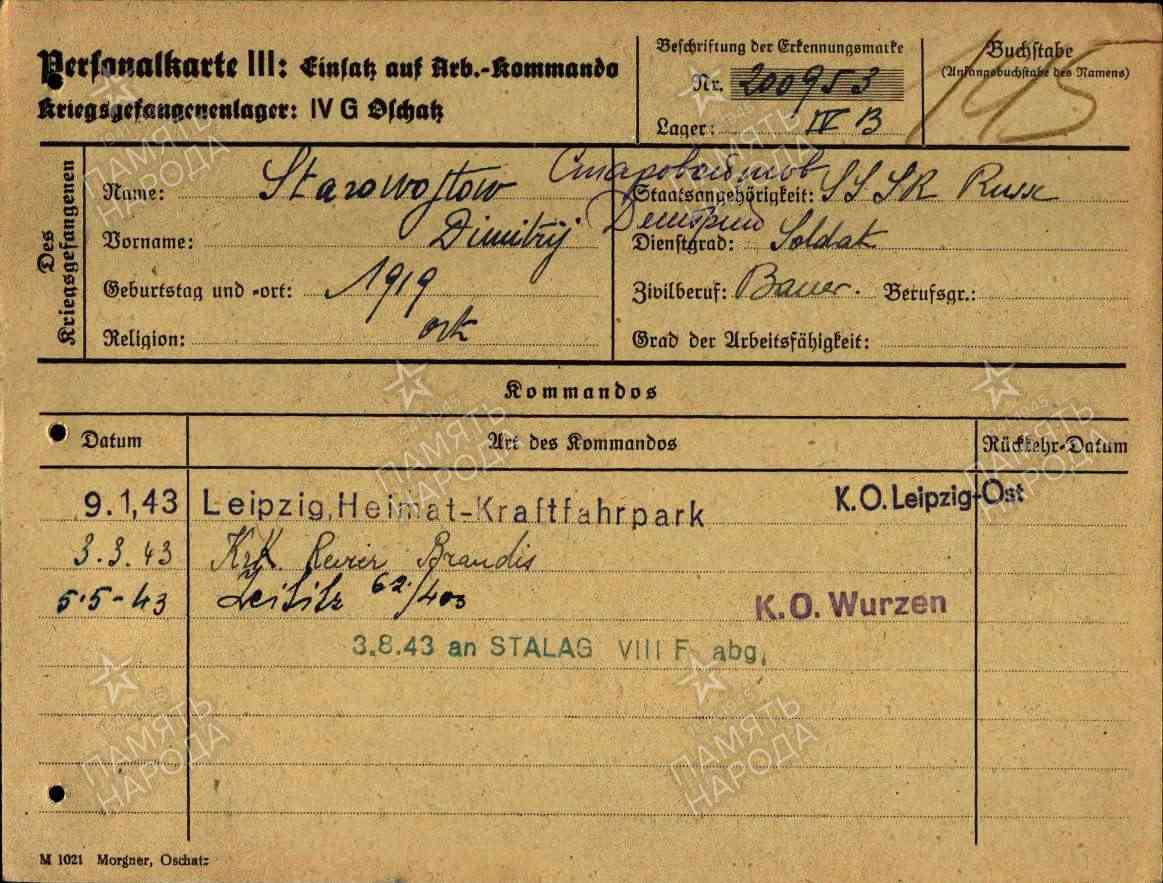 Personalkarte III: Einsatz auf Arb.-Kommando
Kriegsgefangenenlager: IV G Oschatz
Beschriftung der Erkennungsmarke
Nr. 200953
Lager: IV B
Buchstabe
(Anfangsbuchstabe des Namens)
145
Des Kriegsgefangenen
Name: Starowojtow Старовойтов
Vorname: Dimitrij Дмитрий
Geburtstag und -ort: 1919
Religion: ork
Staatsangehörigkeit: SSSR Russe
Dienstgrad: Soldat
Zivilberuf: Bauer. Berufsgr.:
Grad der Arbeitsfähigkeit:
Kommandos
Datum Art des Kommandos Rückkehr-Datum
9.1,43 Leipzig,Heimat-Kraftfahrpark K.O.Leipzig-Ost
3.3.43 Revier Brandis
5.5-43 62/403 K.O. Wurzen
3.8.43 an STALAG VIII F abg,
M 1021 Morgner, Oschatz
ПАМЯТЬ НАРОДА
ПАМЯТЬ НАРОДА
ПАМЯТЬ НАРОДА
ПАМЯТЬ НАРОДА
ПАМЯТЬ НАРОДА
ПАМЯТЬ НАРОДА